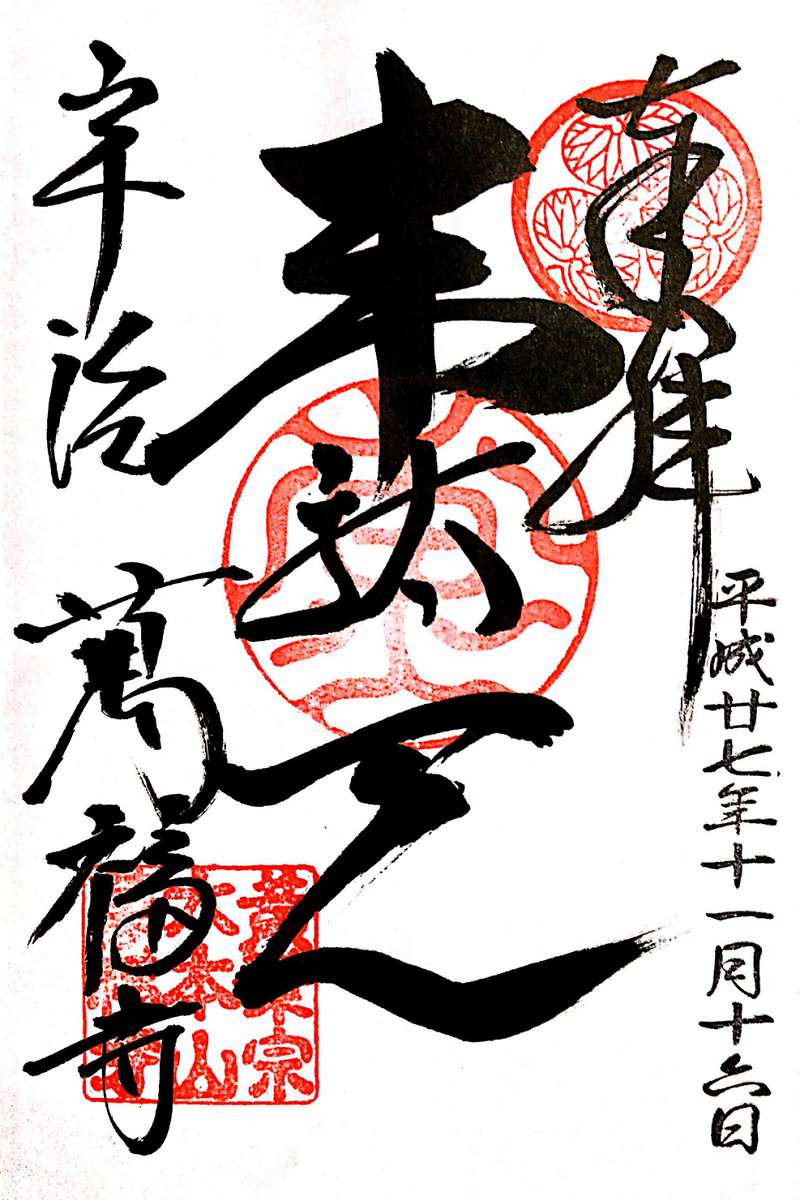 奉拝
平成廿七年十一月十六日
韋駄天
宇治
萬福寺
黄檗宗
大本山
萬福寺